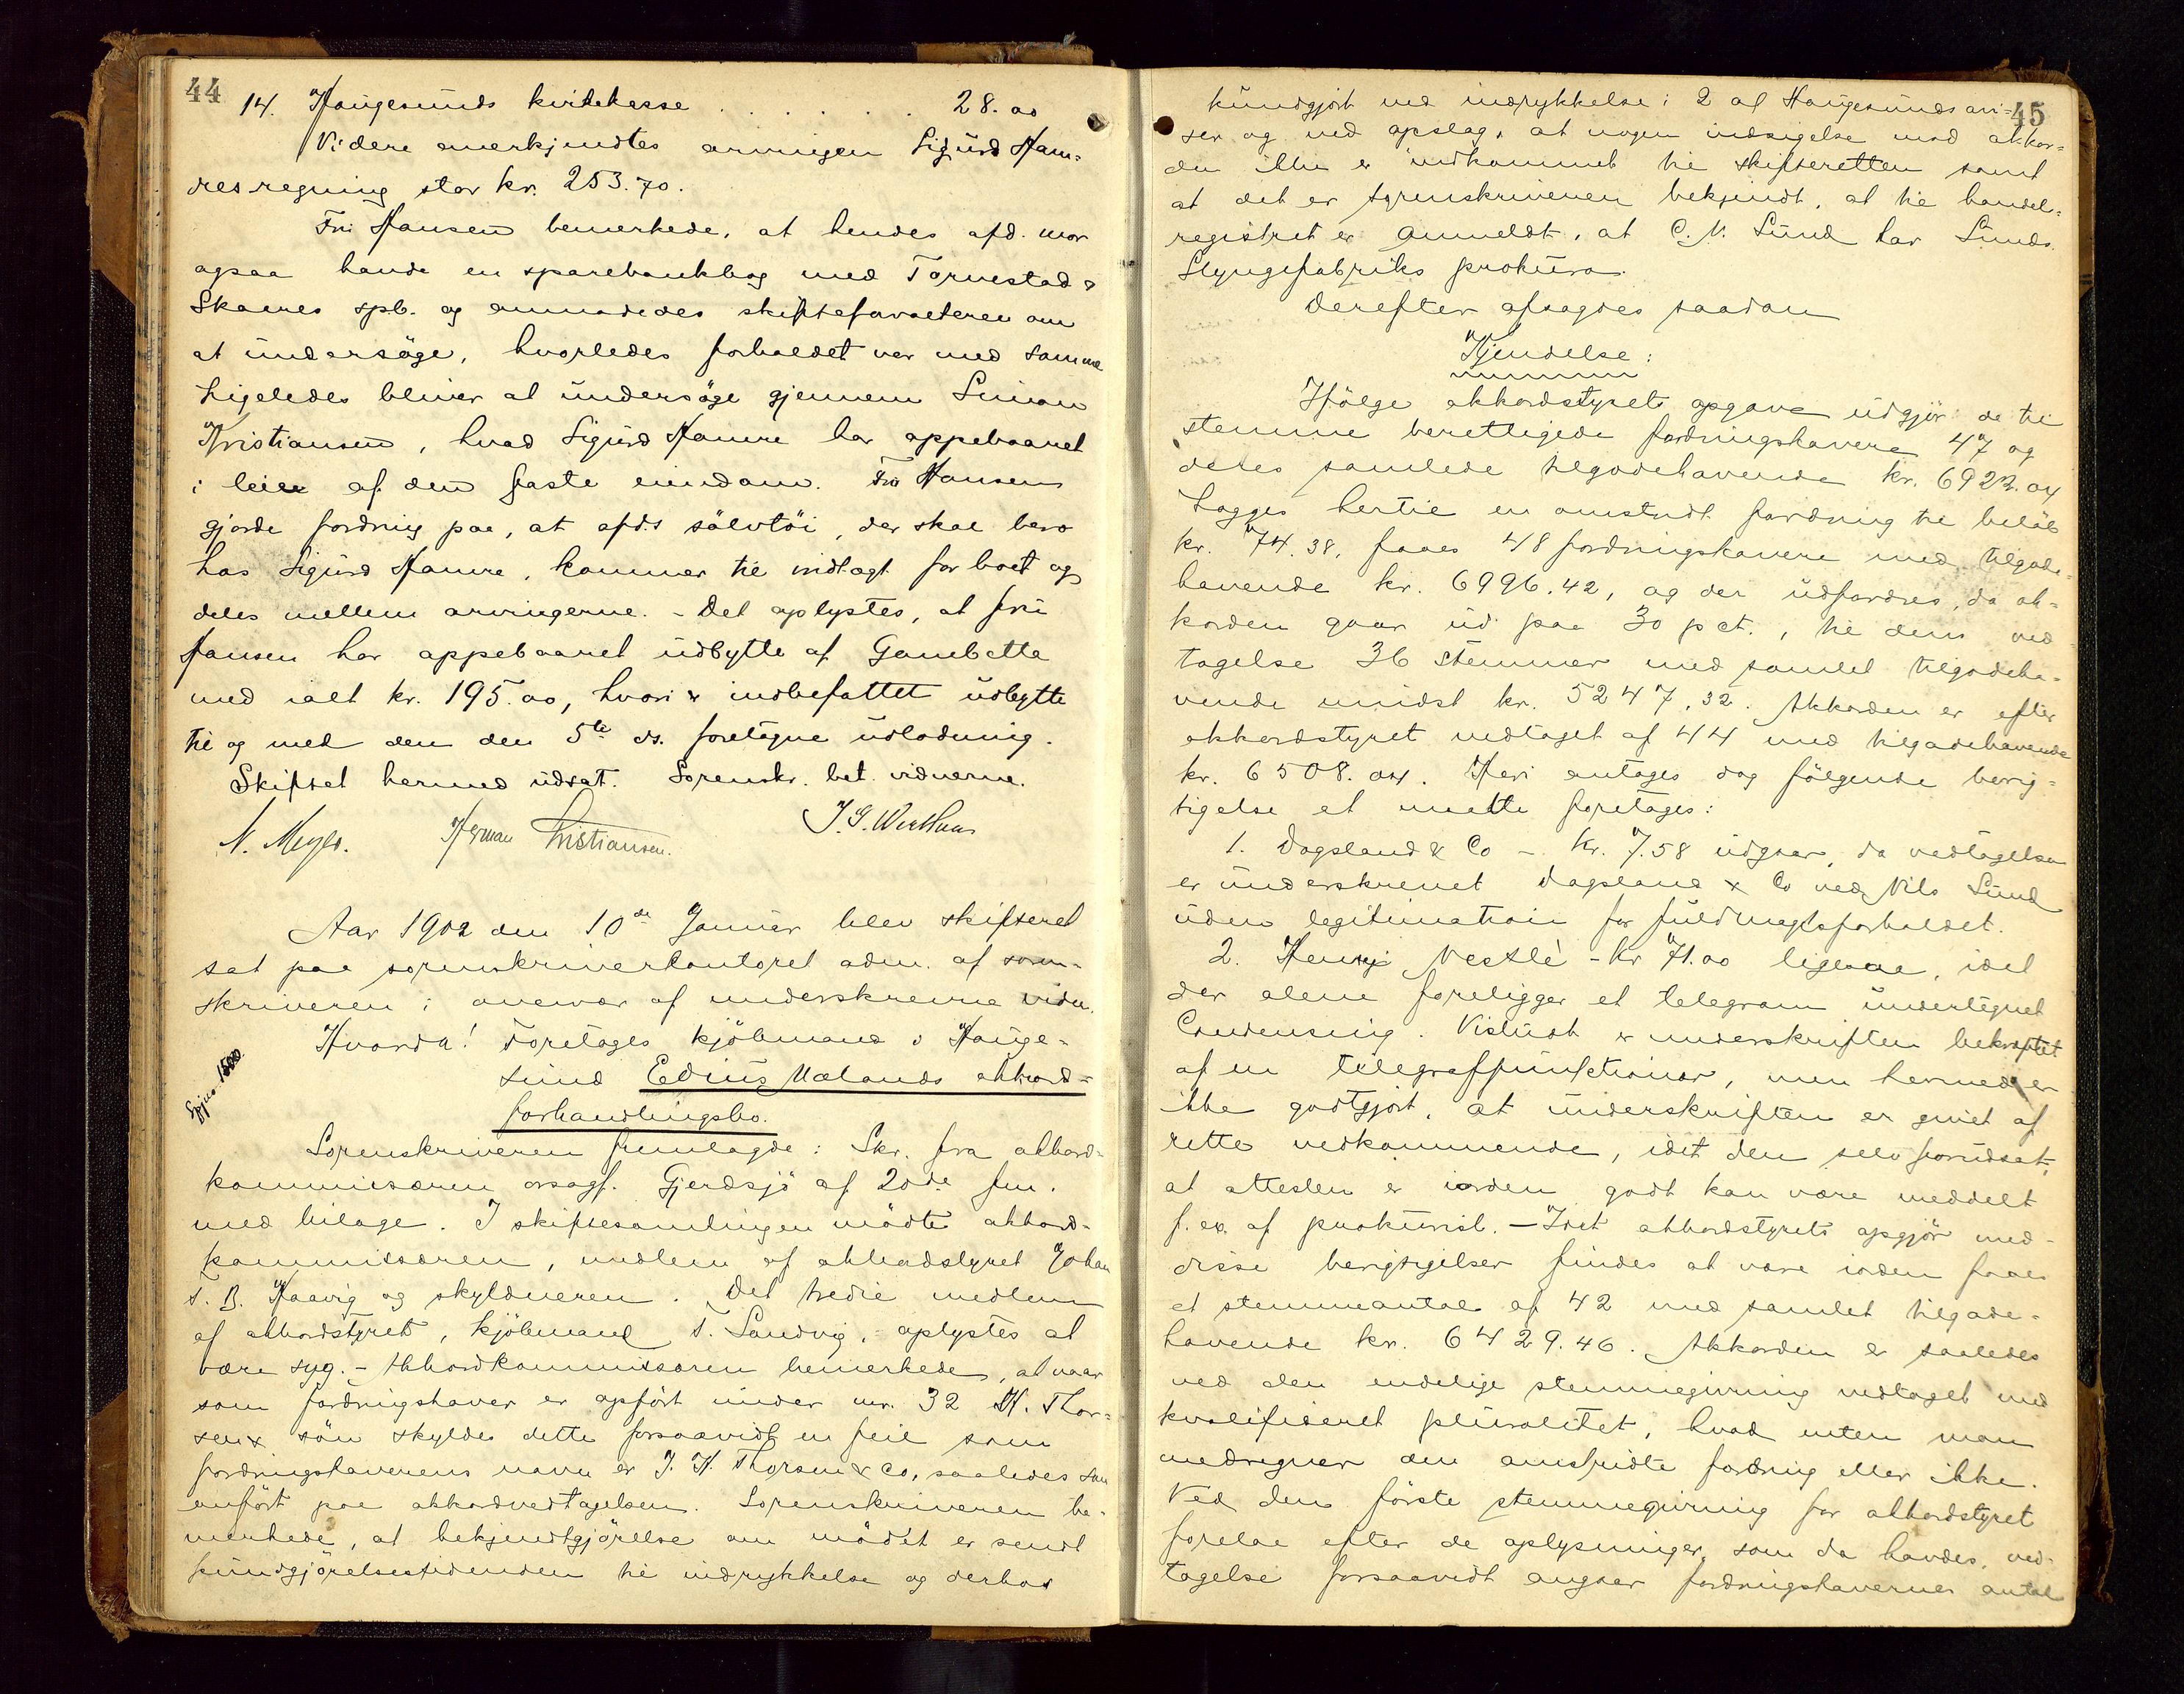 44
14. Haugesunds kridekasse . . . . . . 28.00
Videre anerkjendtes arvingen Sigurd Ham=
res regning stor kr. 253.70.
Fru Hansen bemerkede, at hendes afd. mor
ogsaa havde en sparebankbog med Torvestad &
Skaares spb. og anmodedes skifteforvalteren om
at undersöge, hvorledes forholdet var med samme
Ligeledes bliver at undersöge gjennem Simon
Kristiansen, hvad Sigurd Hamre har oppebaaret
i leie af den faste eiendom. Fru Hansen
gjorde fordring paa, at afd.s sölvtöi, der skal bero
hos Sigurd Hamre, kommer til indtægt for boet og
deles mellem arvingerne. - Det oplystes, at fru
Hansen har oppebaaret udbytte af Gambetta
med ialt kr. 195.00, hvori er indbefattet udbytte
til og med den den 5te ds. foretagne udlodning.
Skiftet hermed udsat. Sorenskr. bet. vidnerne.
N. Meyer. Herman Christiansen. J. G. Wiethaus
Aar 1902 den 10de Januar blev skifteret
sat paa sorenskriverkontoret adm. af soren-
skriveren i overvær af underskrevne vidn.
Hvorda! Foretoges kjöbmand i Hauge-
sund Edius Mælands akkord=
forhandlingsbo.
Sorenskriveren fremlagde: Skr. fra akkord-
kommissæren orsagf. Gjerdsjö af 20de fm.
med bilage. I skiftesamlingen mödte akkord-
kommissæren, medlem af akkordstyret Johan
T. B. Haavig og skyldneren. Det tredie medlem
af akkordstyret, kjöbmand T. Sandvig, oplystes at
være syg. - Akkordkommissæren bemerkede, at naar
som fordringshaver er opfört under nr. 32 H. Thor=
sen & sön skyldes dette forsaavidt en feil som
fordringshaverens navn er J. H. Thorsen & Co, saaledes som
anfört paa akkordvedtagelsen. Sorenskriveren be-
merkede, at bekjendtgjörelse om mödet er sendt
kundgjörelsestidenden til indrykkelse og derhos
45
kundgjort ved indrykkelse i 2 af Haugesunds avi=
ser og ved opslag, at nogen indsigelse mod akkor=
den ikke er indkommet til skifteretten samt
at det er sorenskriveren bekjendt, at til handels=
registret er anmeldt, at C. N. Lund har Lunds
Slyngefabriks prokura.
Derefter afsagdes saadan
Kjendelse:
Ifölge akkordstyrets opgave udgjör de til
stemme berettigede fordringshavere 47 og
deres samlede tilgodehavende kr. 6922.04
Lægges hertil en omstridt fordring til belöb
kr. 74.38, faaes 48 fordringshavere med tilgode-
havende kr. 6996.42, og der udfordres, da ak=
korden gaar ud paa 30 pct., til dens ved
tagelse 36 stemmer med samlet tilgodeha-
vende mindst kr. 5247.32. Akkorden er efter
akkordstyret vedtaget af 44 med tilgodehavende
kr. 6508.04. Heri antages dog fölgende berig=
tigelse at maatte foretages:
1. Dagsland & Co - kr. 7.58 udgaar, da vedtagelsen
er underskrevet Dagsland & Co ved Nils Lund
uden legitimation for fuldmagtsforholdet.
2. Henri Nestlè - kr 71.00 ligesaa, idet
der alene foreligger et telegram undertegnet
Condensing. Vistnok er underskriften bekræftet
af en telegraffunktionær, men hermed er
ikke godtgjort, at underskriften er givet af
rette vedkommende, idet den selv forudsat,
at attesten er iorden godt kan være meddelt
f. ex. af prokurist. - Idet akkordstyrets opgjör med
disse berigtigelser findes at være iorden faaes
et stemmeantal af 42 med samlet tilgode-
havende kr. 6429.46. Akkorden er saaledes
ved den endelige stemmegivning vedtaget med
kvalificeret pluralitet, hvad enten man
medregner den omstridte fordring eller ikke.
Ved den förste stemmegivning for akkordstyret
forelaa efter de oplysninger, som da havdes, ved-
tagelse forsaavidt angaar fordringshavernes antal